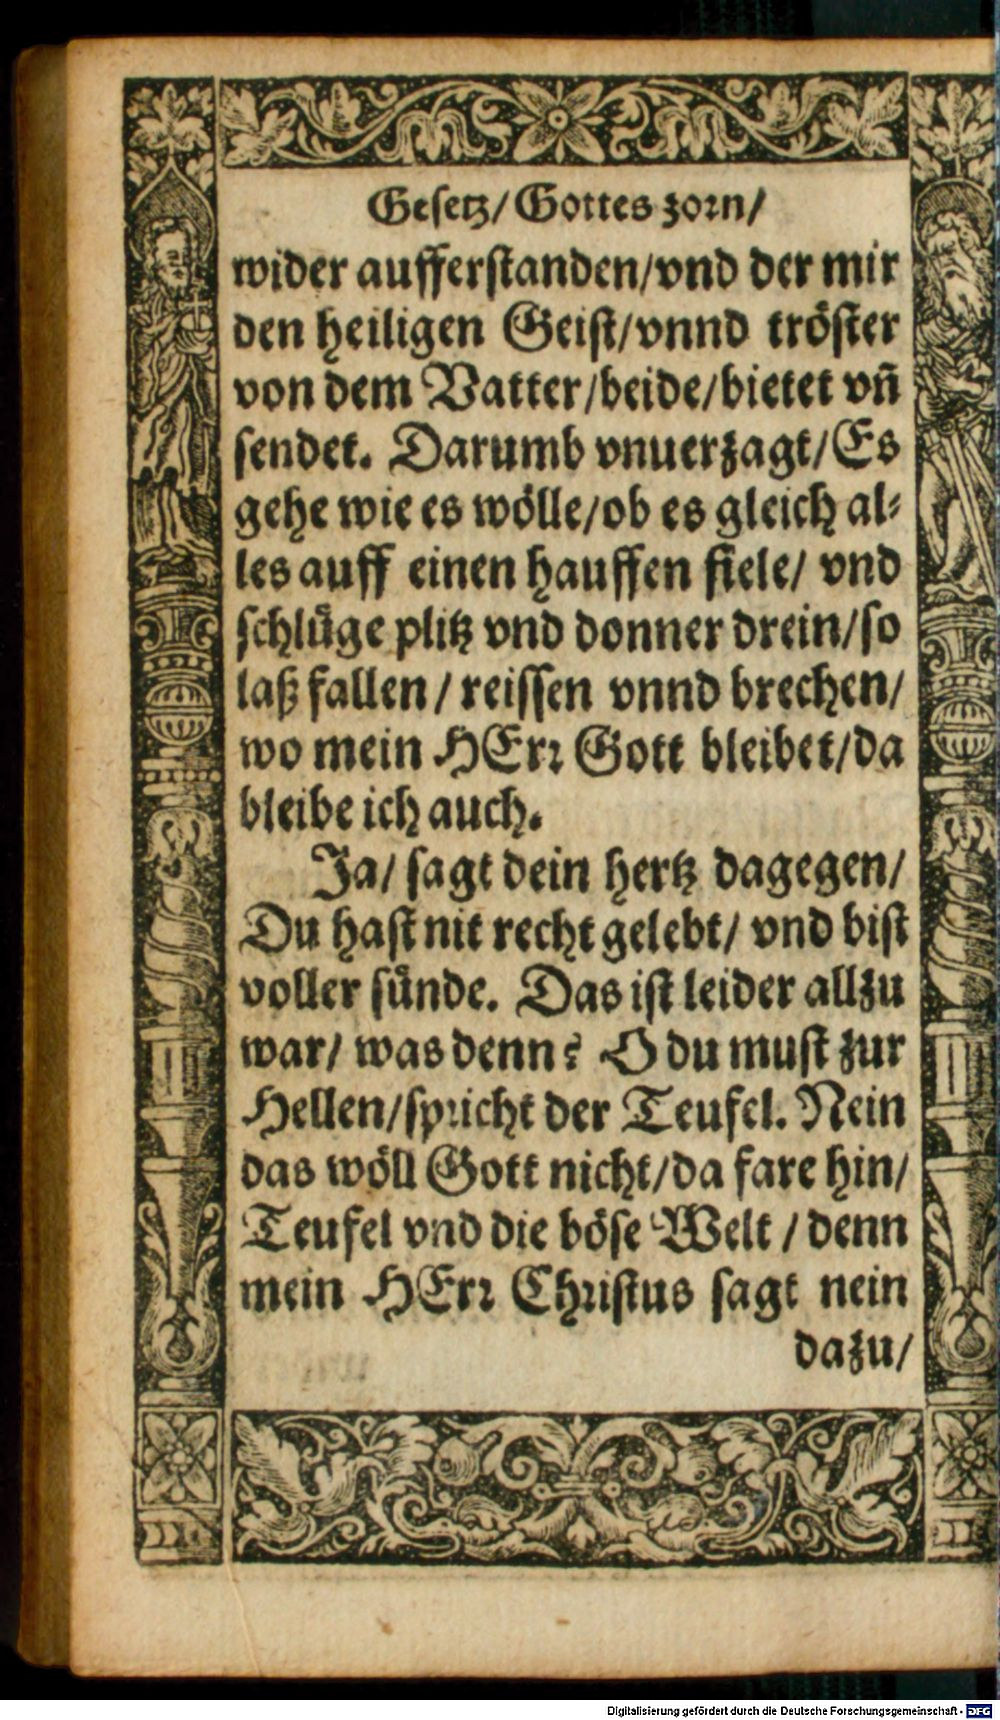 Gesetz/Gottes zorn/
wider aufferstanden/vnd der mir
den heiligen Geist/vnnd tröster
von dem Vatter/beide/bietet vñ
sendet. Darumb vnuerzagt/Es
gehe wie es wölle/ob es gleich al-
les auff einen hauffen fiele/ vnd
schluͤge plitz vnd donner drein/so
laß fallen / reissen vnnd brechen/
wo mein HErr Gott bleibet/da
bleibe ich auch.
Ja/ sagt dein hertz dagegen/
Du hast nit recht gelebt/ vnd bist
voller sünde. Das ist leider allzu
war/ was denn? O du must zur
Hellen/spricht der Teufel. Nein
das wöll Gott nicht/da fare hin/
Teufel vnd die böse Welt / denn
mein HErr Christus sagt nein
dazu/
Digitalisierung gefördert durch die Deutsche Forschungsgemeinschaft - DFG